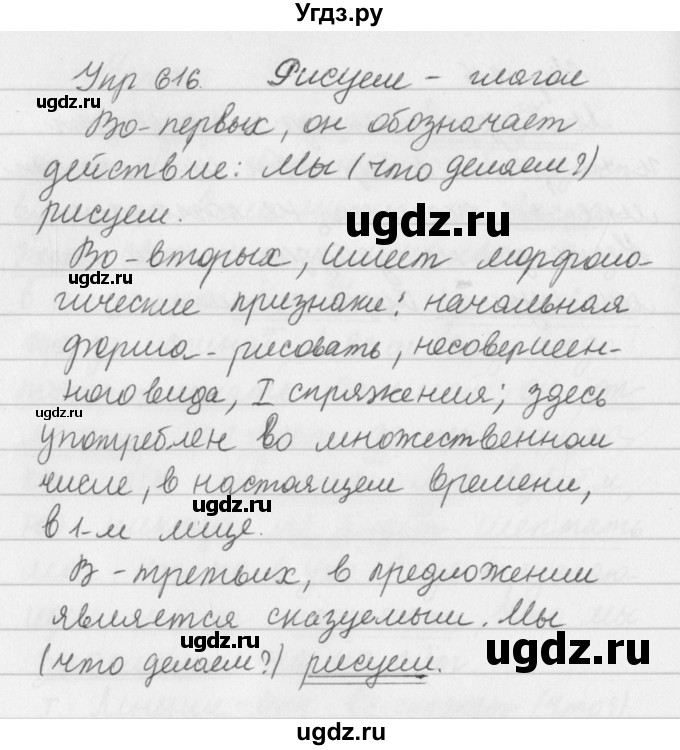 Угдз.ру
Упр 616. Рисуем - глагол
Во-первых, он обозначает
действие: Мы (что делаем?)
рисуем.
Во-вторых, имеет морфоло-
гические признаки: начальная
форма - рисовать, несовершен-
ного вида, I спряжения; здесь
употреблен во множественном
числе, в настоящем времени,
в 1-м лице.
В-третьих, в предложении
является сказуемым. Мы
(что делаем?) рисуем.
ugdz.ru
ugdz.ru
ugdz.ru
ugdz.ru
ugdz.ru
ugdz.ru
ugdz.ru
ugdz.ru
ugdz.ru